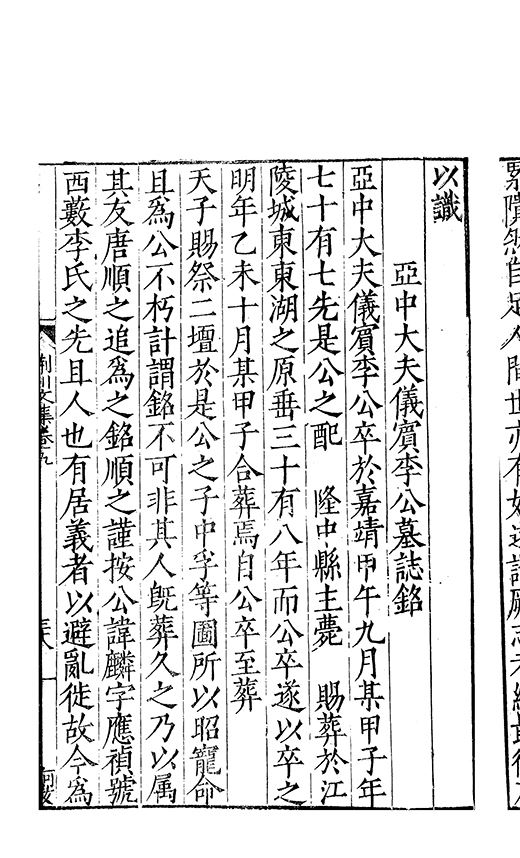 以識
亞中大夫儀賓李公墓誌銘
亞中大夫儀賓李公卒於嘉靖甲午九月某甲子年
七十有七先是公之配　隆中縣主薨　賜葬於江
陵城東東湖之原垂三十有八年而公卒遂以卒之
明年乙未十月某甲子合葬焉自公卒至葬
天子賜祭二壇於是公之子中孚等圖所以昭寵命
且為公不朽計謂銘不可非其人既葬久之乃以属
其友唐順之追為之銘順之謹按公諱麟字應禎號
西藪李氏之先且人也有居義者以避亂徙故今為
荊川文集卷十九